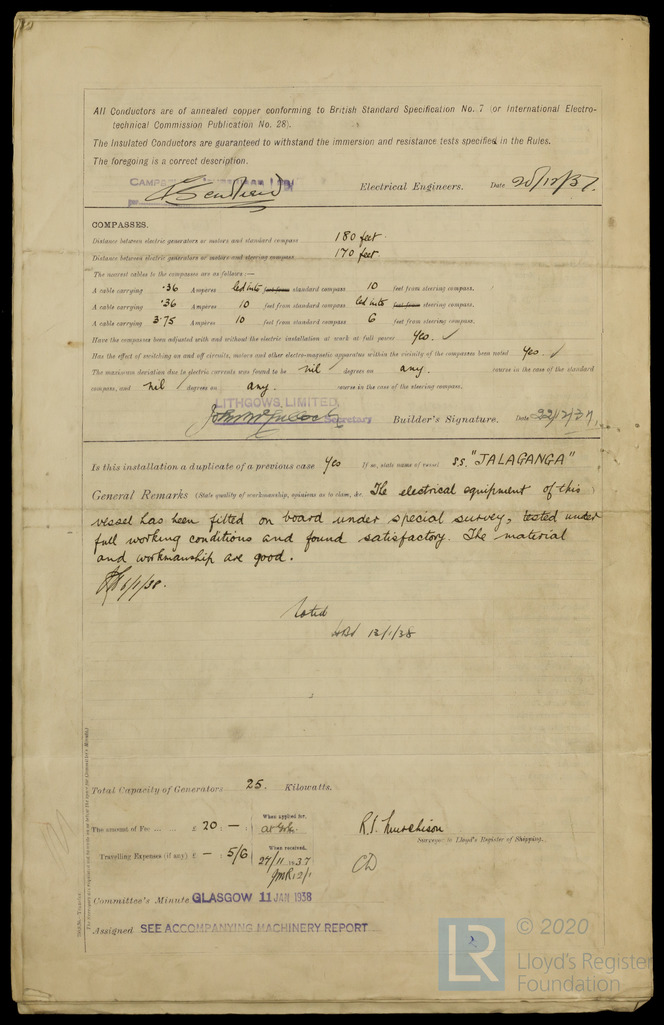 All Conductors are of annealed copper conforming to British Standard Specification No. 7 (or International Electro-
technical Commission Publication No. 28).
The Insulated Conductors are guaranteed to withstand the immersion and resistance tests specified in the Rules.
The foregoing is a correct description.
Electrical Engineers. Date 20/12/37.
COMPASSES.
Distance between electric generators or motors and standard compass 180 feet
Distance between electric generators or motors and steering compass 170 feet
The nearest cables to the compasses are as follows:—
A cable carrying .36 Ampères led into feet from standard compass 10 feet from steering compass.
A cable carrying .36 Ampères 10 feet from standard compass led into feet from steering compass.
A cable carrying 3.75 Ampères 10 feet from standard compass 6 feet from steering compass.
Have the compasses been adjusted with and without the electric installation at work at full power Yes. ✓
Has the effect of switching on and off circuits, motors and other electro-magnetic apparatus within the vicinity of the compasses been noted Yes. ✓
The maximum deviation due to electric currents was found to be nil degrees on any. course in the case of the standard
compass, and nil degrees on any. course in the case of the steering compass.
LITHGOWS, LIMITED.
Secretary Builder's Signature. Date 22/12/37.
Is this installation a duplicate of a previous case Yes If so, state name of vessel S.S. "JALAGANGA"
General Remarks (State quality of workmanship, opinions as to class, &c. The electrical equipment of this
vessel has been fitted on board under special survey, tested under
full working conditions and found satisfactory. The material
and workmanship are good.
6/1/38.
Noted
12/1/38
Total Capacity of Generators 25. Kilowatts.
The amount of Fee ... £ 20 : — : When applied for,
Travelling Expenses (if any) £ — : 5/6 When received,
27/11 1937
R. S. Hutchison
Surveyor to Lloyd's Register of Shipping.
Committee's Minute GLASGOW 11 JAN 1938
Assigned SEE ACCOMPANYING MACHINERY REPORT
LR © 2020
Lloyd's Register
Foundation